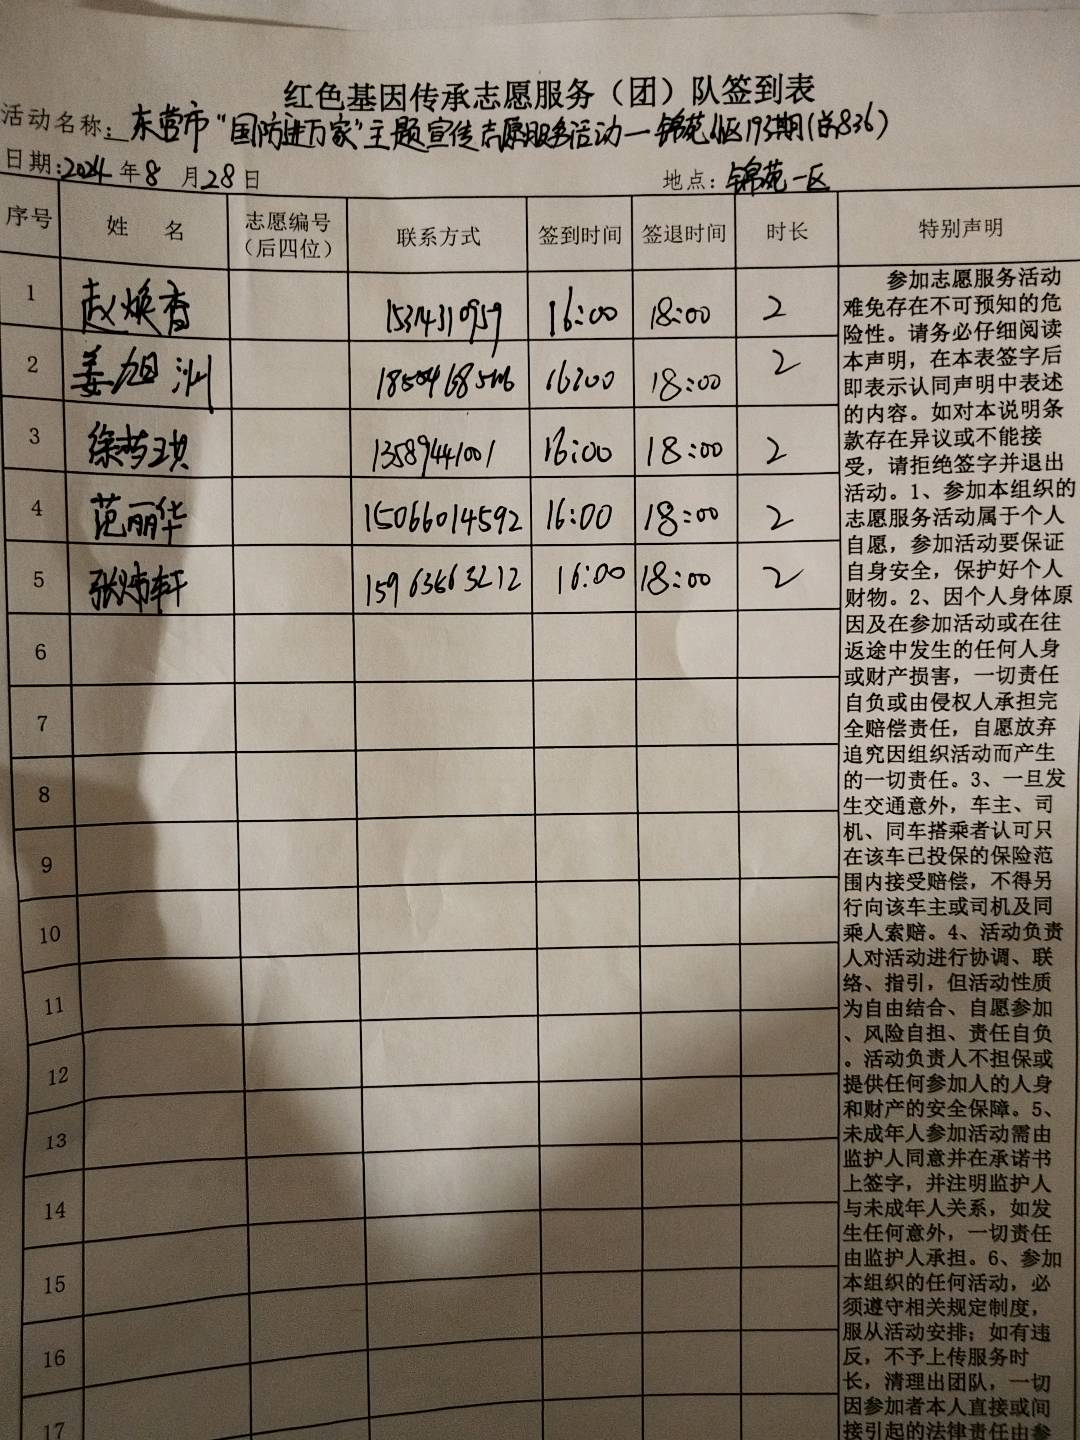 红色基因传承志愿服务（团）队签到表
活动名称：东营市“国防进万家”主题宣传志愿服务活动—锦苑小区193期(总836)
日期：2024年8月28日 地点：锦苑一区
序号 姓 名 志愿编号（后四位） 联系方式 签到时间 签退时间 时长 特别声明
1 赵焕香 15314310959 16:00 18:00 2
2 姜旭 16:00 18:00 2
3 徐梦琪 13589441001 16:00 18:00 2
4 范丽华 15066014592 16:00 18:00 2
5 张炜轩 15963663212 16:00 18:00 2
6
7
8
9
10
11
12
13
14
15
16
17
参加志愿服务活动
难免存在不可预知的危
险性。请务必仔细阅读
本声明，在本表签字后
即表示认同声明中表述
的内容。如对本说明条
款存在异议或不能接
受，请拒绝签字并退出
活动。1、参加本组织的
志愿服务活动属于个人
自愿，参加活动要保证
自身安全，保护好个人
财物。2、因个人身体原
因及在参加活动或在往
返途中发生的任何人身
或财产损害，一切责任
自负或由侵权人承担完
全赔偿责任，自愿放弃
追究因组织活动而产生
的一切责任。3、一旦发
生交通意外，车主、司
机、同车搭乘者认可只
在该车已投保的保险范
围内接受赔偿，不得另
行向该车主或司机及同
乘人索赔。4、活动负责
人对活动进行协调、联
络、指引，但活动性质
为自由结合、自愿参加
、风险自担、责任自负
。活动负责人不担保或
提供任何参加人的人身
和财产的安全保障。5、
未成年人参加活动需由
监护人同意并在承诺书
上签字，并注明监护人
与未成年人关系，如发
生任何意外，一切责任
由监护人承担。6、参加
本组织的任何活动，必
须遵守相关规定制度，
服从活动安排；如有违
反，不予上传服务时
长，清理出团队，一切
因参加者本人直接或间
接引起的法律责任由参